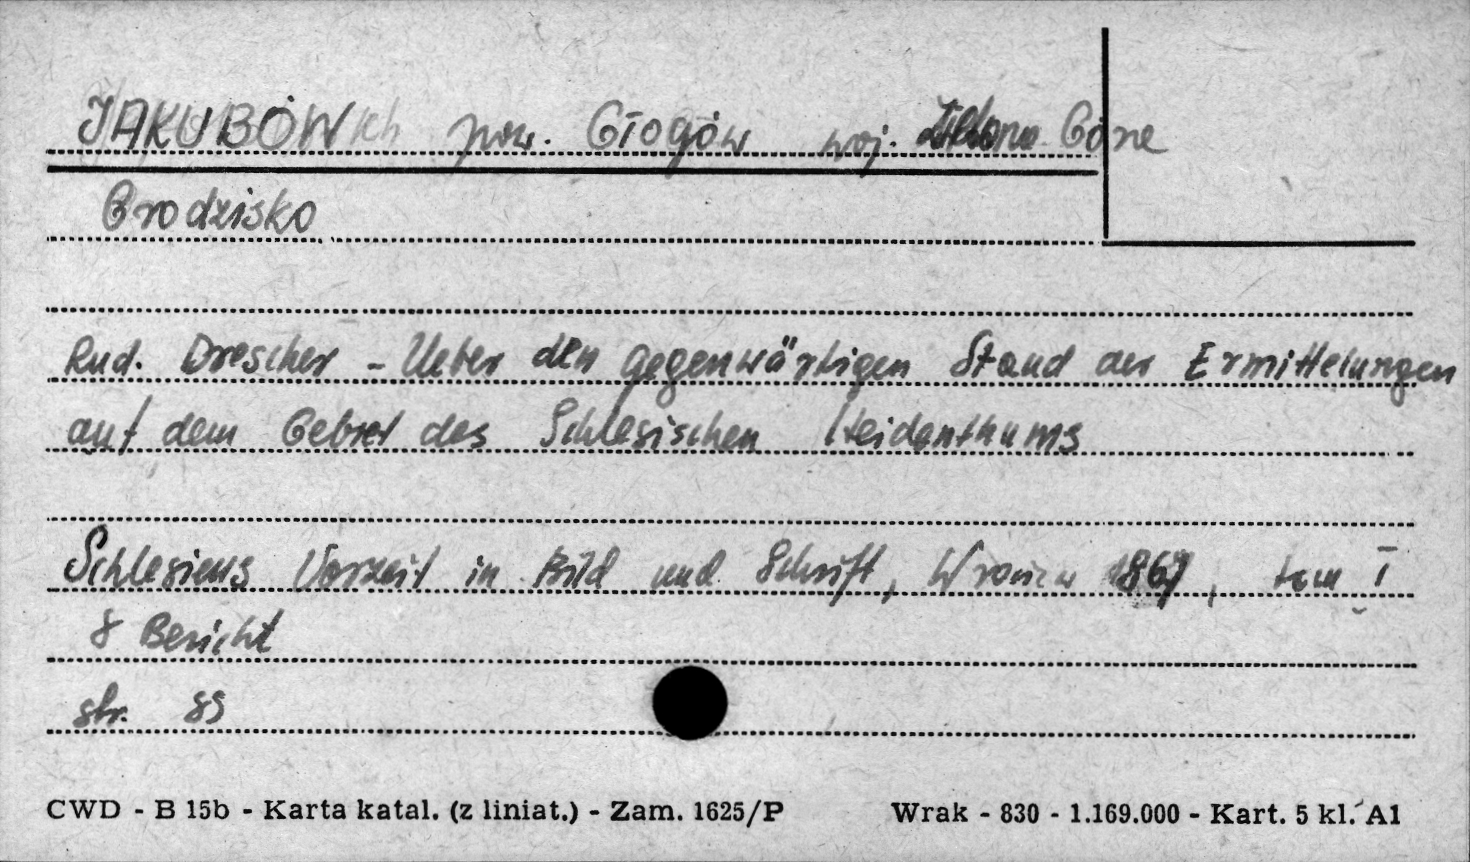 JAKUBÓW pow. Głogów woj. Zielona Góra
Grodzisko
Rud. Drescher - Ueber den gegenwärtigen Stand der Ermittelungen
auf dem Gebiet des Schlesischen Heidenthums
Schlesiens Vorzeit in Bild und Schrift, Wrocław 1867, tom I
8 Bericht
str.
CWD - B 15b - Karta katal. (z liniat.) - Zam. 1625/P Wrak - 830 - 1.169.000 - Kart. 5 kl. A1